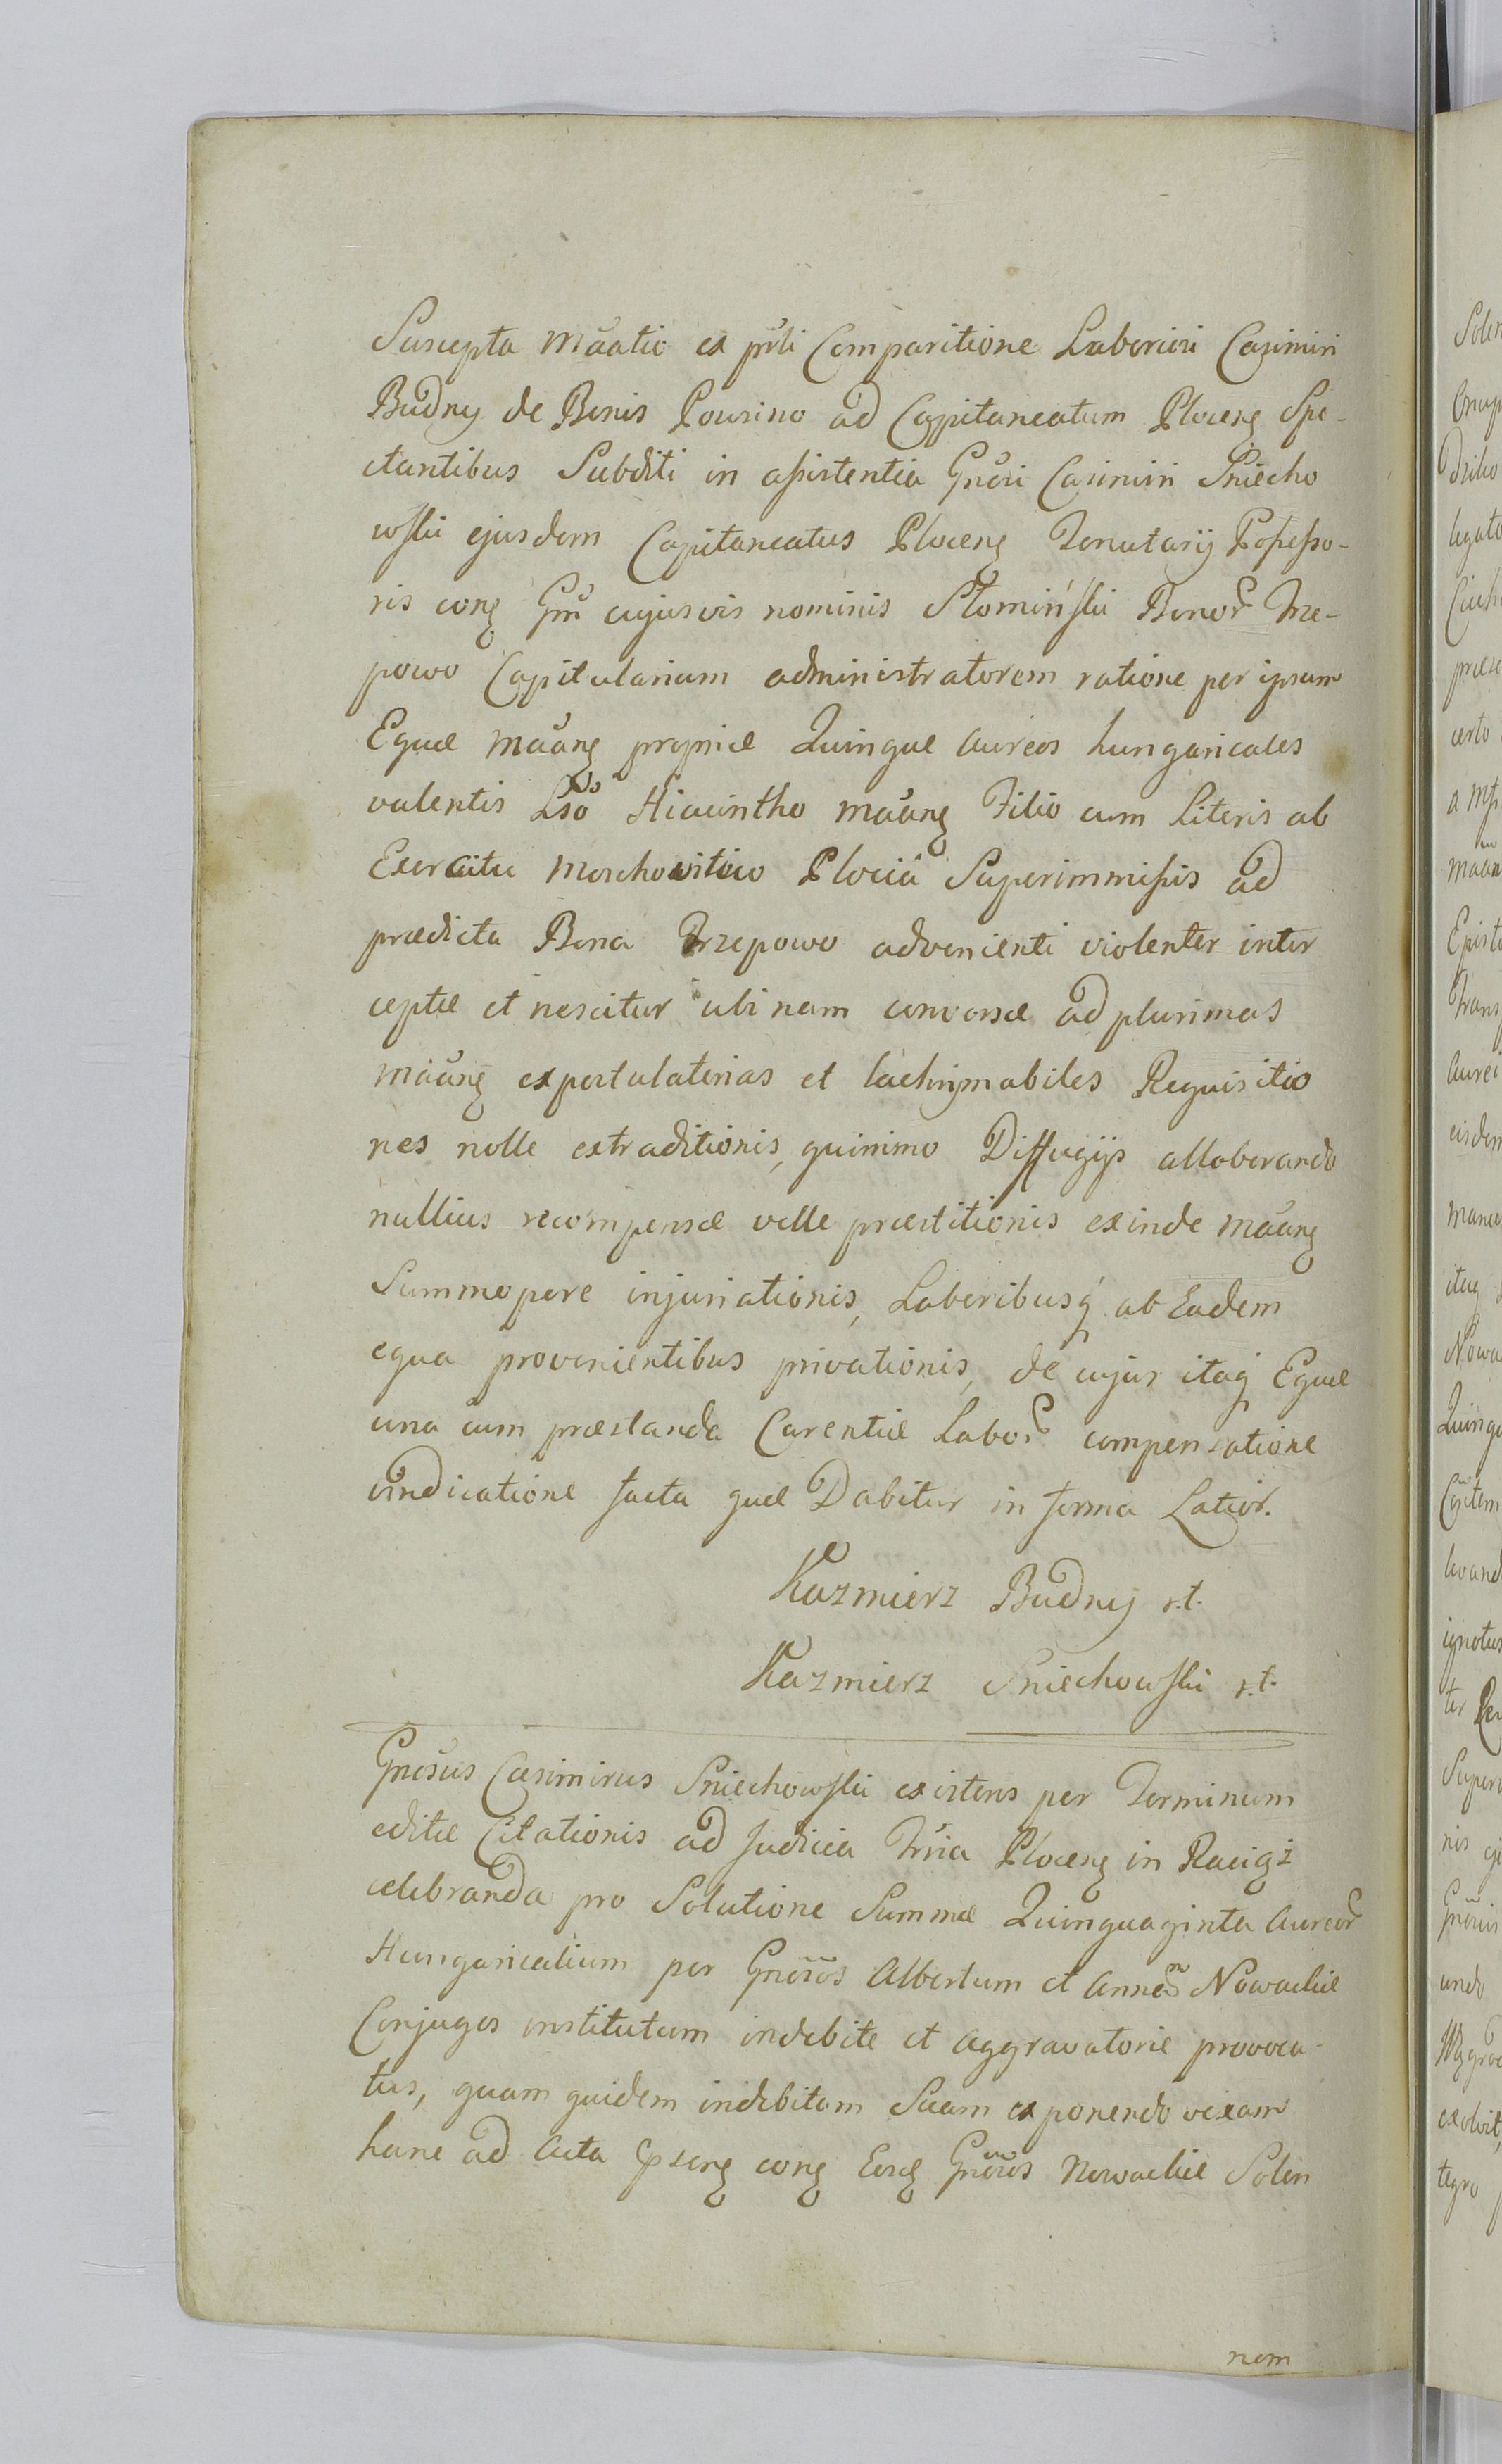 Suscepta mãatio ex prŭli Comparitione Laboriosi Casimiri
Budny de Bonis Powsino ad Cappitaneatum Ploceñ Spe-
ctantibus Subditi in assistentia Gnŏsi Casimiri Sniecho
wski ejusdem Capitaneatus Ploceñ Tenutarij Possesso-
ris cong Gm̃ cujusvis nominis Słomiński Bonor Trze-
powo Capitularium administratorem ratione per ipsum
Equæ mãang propriæ Quinque Aureos hungaricales
valentis Lsŏ Hiacintho mãang Filio cum literis ab
Exercitu Moschovitico Plociã Superimmissis ad
prædicta Bona Trzepowo advenienti violenter inter
ceptæ et nescitur ubi nam conversæ ad plurimas
mãang expostulatorias et lachrijmabiles Requisitio
nes nolle extraditionis, quinimo Diffugijs allaborando
nullius recompensæ velle præstitionis exinde mãang
Summopere injuriationis, Laboribusq ab Eadem
equa provenientibus privationis, de cujus itaq Equæ
una cum præstanda Carentiæ Labor compensatione
vindicatione facta quæ Dabitur in forma Latior.
Kazmierz Budny r.t.
Kazmierz Sniechowski r.t.
Gnosus Casimirus Sniechowski existens per Terminum
editæ Citationis ad Judicia Trria Ploceñ in Raciąż
celebranda pro Solutione Summæ Quinquaginta Aureor
Hungaricalium per Gnoros Albertum et Annam Nowackie
Conjuges institutum indebite et Aggravatorie provoca-
tus, quam quidem indebitam Suam exponendo vexam
hanc ad Acta cong Eosd Gnoros Nowackie Solen
nem